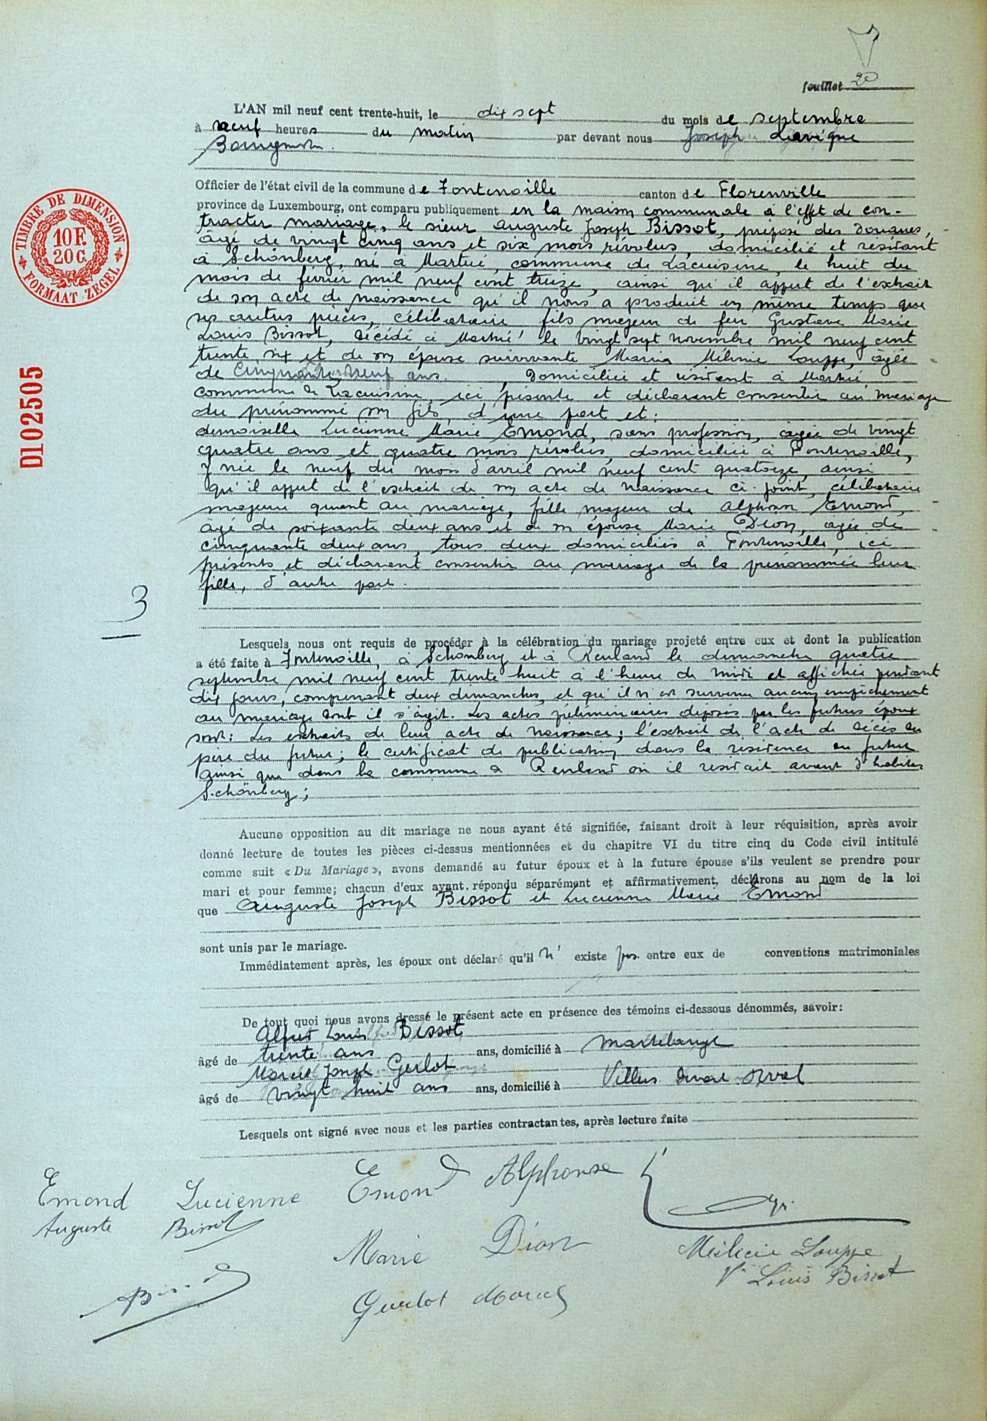 feuillet 20
L'AN mil neuf cent trente-huit, le dix sept du mois de septembre
à neuf heures du matin par devant nous Joseph Lavigne
Bourgmestre.
Officier de l'état civil de la commune de Fontenoille canton de Florenville
province de Luxembourg, ont comparu publiquement en la maison communale à l'effet de con-
tracter mariage, le sieur Auguste Joseph Bissot, préposé des douanes,
âgé de vingt cinq ans et six mois révolus, domicilié et résidant
à Schönberg, né à Martué, commune de Lacuisine, le huit du
mois de février mil neuf cent treize, ainsi qu'il appert de l'extrait
de son acte de naissance qu'il nous a produit en même temps que
ses autres pièces, célibataire fils majeur de feu Gustave Marie
Louis Bissot, décédé à Martué le vingt sept novembre mil neuf cent
trente six et de son épouse survivante Maria Mélanie Louppe, âgée
de cinquante neuf ans, domiciliée et résidant à Martué
commune de Lacuisine, ici présente et déclarant consentir au mariage
du prénommé son fils d'une part et:
demoiselle Lucienne Marie Emond, sans profession, âgée de vingt
quatre ans et quatre mois révolus, domiciliée à Fontenoille,
y née le neuf du mois d'avril mil neuf cent quatorze ainsi
qu'il appert de l'extrait de son acte de naissance ci-joint, célibataire
majeure quant au mariage, fille majeure de Alphonse Emond,
âgé de soixante deux ans et de son épouse Marie Dion, âgée de
cinquante deux ans, tous deux domiciliés à Fontenoille, ici
présents et déclarant consentir au mariage de la prénommée leur
fille, d'autre part.
3
Lesquels nous ont requis de procéder à la célébration du mariage projeté entre eux et dont la publication
a été faite à Fontenoille, à Schönberg et à Reuland le dimanche quatre
septembre mil neuf cent trente huit à l'heure de midi et affichée pendant
dix jours, comprenant deux dimanches, et qu'il n'est survenu aucun empêchement
au mariage dont il s'agit. Les actes préliminaires déposés par les futurs époux
sont: Les extraits de leur acte de naissance; l'extrait de l'acte de décès du
père du futur; le certificat de publication dans la résidence du futur
ainsi que dans la commune de Reuland où il résidait avant d'habiter
Schönberg;
Aucune opposition au dit mariage ne nous ayant été signifiée, faisant droit à leur réquisition, après avoir
donné lecture de toutes les pièces ci-dessus mentionnées et du chapitre VI du titre cinq du Code civil intitulé
comme suit « Du Mariage », avons demandé au futur époux et à la future épouse s'ils veulent se prendre pour
mari et pour femme; chacun d'eux ayant répondu séparément et affirmativement, déclarons au nom de la loi
que Auguste Joseph Bissot et Lucienne Marie Emond
sont unis par le mariage.
Immédiatement après, les époux ont déclaré qu'il n'existe pas entre eux de conventions matrimoniales
De tout quoi nous avons dressé le présent acte en présence des témoins ci-dessous dénommés, savoir:
Alfred Louis Bissot
âgé de trente ans ans, domicilié à Martelange
Marcel Joseph Gerlot
âgé de vingt huit ans ans, domicilié à Villers devant Orval
Lesquels ont signé avec nous et les parties contractantes, après lecture faite
Emond Lucienne Emond Alphonse
Auguste Bissot
Marie Dion
Louppe
Vve Louis Bissot
TIMBRE DE DIMENSION
10 F.
20 C.
FORMAAT ZEGEL
D102505